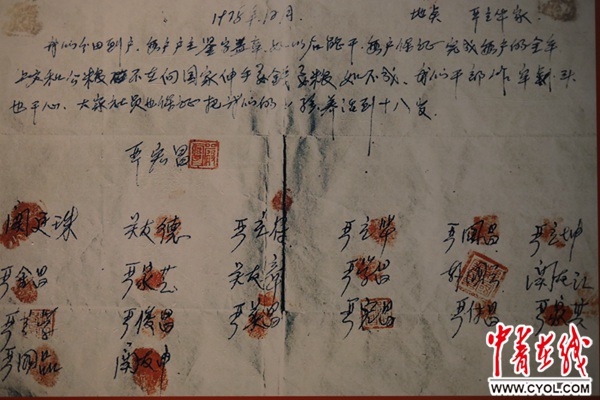 1978年12月. 地点 严立华家
我们分田到户, 每户户主签字盖章, 如以后能干, 每户保证完成每户的全年
上交和公粮 不在向国家伸手要钱要粮 如不成, 我们干部作牢剎头
也干心, 大家社员也保证把我们的小孩养活到十八岁.
严宏昌
关廷珠 关友德 严立符 严立华 严国昌 严立坤
严金昌 严家芝 关友章 严学昌 韩国云 关友江
严立学 严俊昌 严美昌 严宏昌 严付昌 严家其
严国品 关友申
中青在线
WWW.CYOL.COM